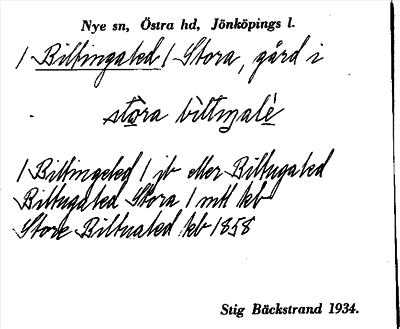 Nye sn, Östra hd, Jönköpings l.
/ Biltingaled / Stora, gård i
stora biltŋalè
/ Biltingeled / jb eller Biltugaled
Biltugaled Stora / mtl kb
Store Biltualed kb 1858
Stig Bäckstrand 1934.